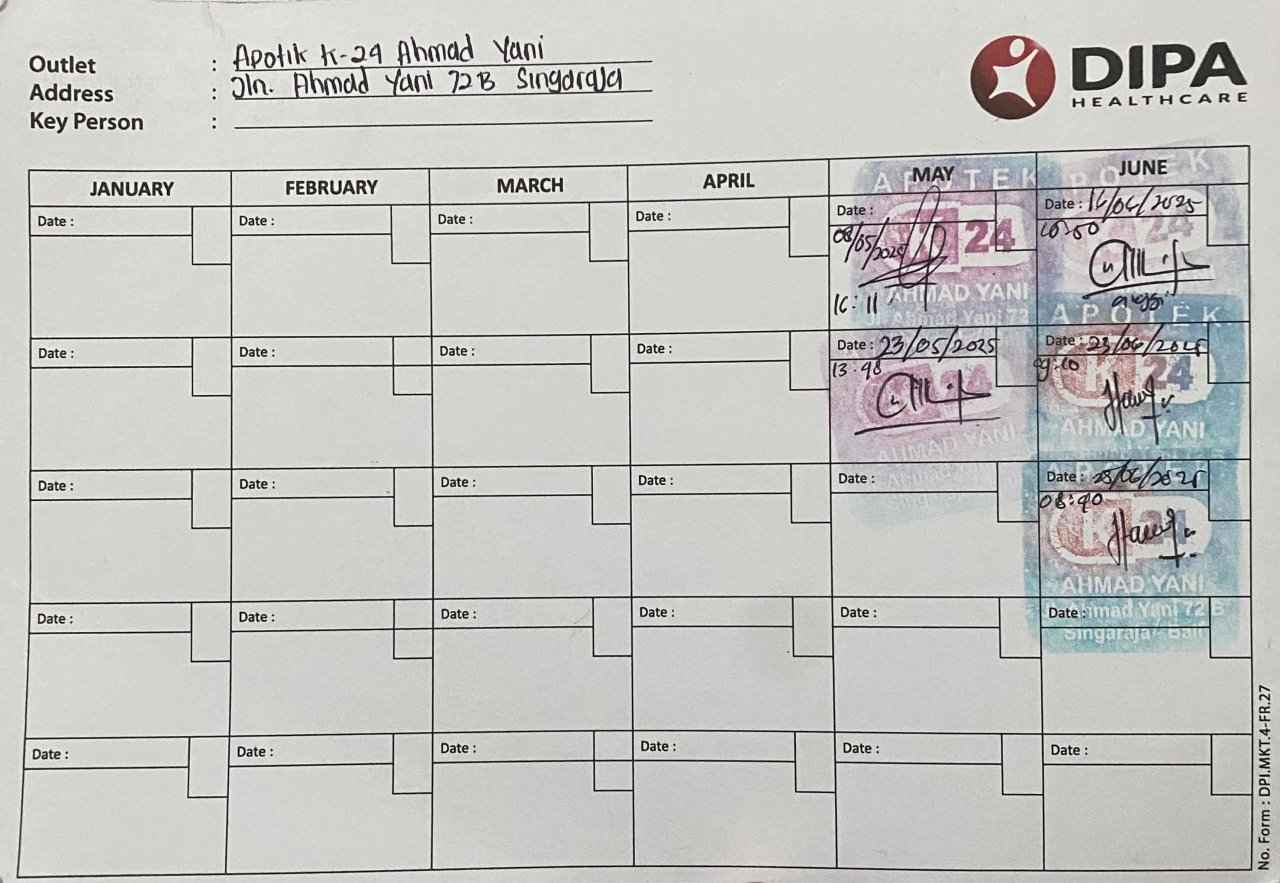 Outlet : Apotik K-24 Ahmad Yani
Address : Jln. Ahmad Yani 72 B Singaraja
Key Person :
DIPA
HEALTHCARE
JANUARY FEBRUARY MARCH APRIL MAY JUNE
Date : Date : Date : Date : Date : 08/05/2025 Date : 16/06/2025
16:11 10:50
APOTEK
K 24
AHMAD YANI
Jl. Ahmad Yani 72
APOTEK
24
anggi
Date : Date : Date : Date : Date : 23/05/2025 Date : 23/06/2025
13.48 09:10
24
AHMAD YANI
APOTEK
K 24
AHMAD YANI
Date : Date : Date : Date : Date : Date : 28/06/2025
08:40
APOTEK
K 24
AHMAD YANI
Jl. Ahmad Yani 72 B
Singaraja - Bali
Date : Date : Date : Date : Date : Date :
Date : Date : Date : Date : Date : Date :
No. Form : DPI.MKT.4-FR.27